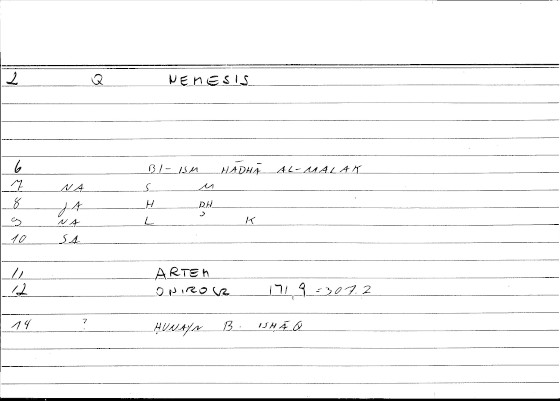 2 Q NEMESIS
6 BI-ISM HĀDHĀ AL-MALAK
7 NA S M
8 JA H DH
9 NA L ʾ K
10 SA
11 ARTEM
12 ONIROCR 171,9 = 307.2
14 ? ḤUNAYN B. ISḤĀQ